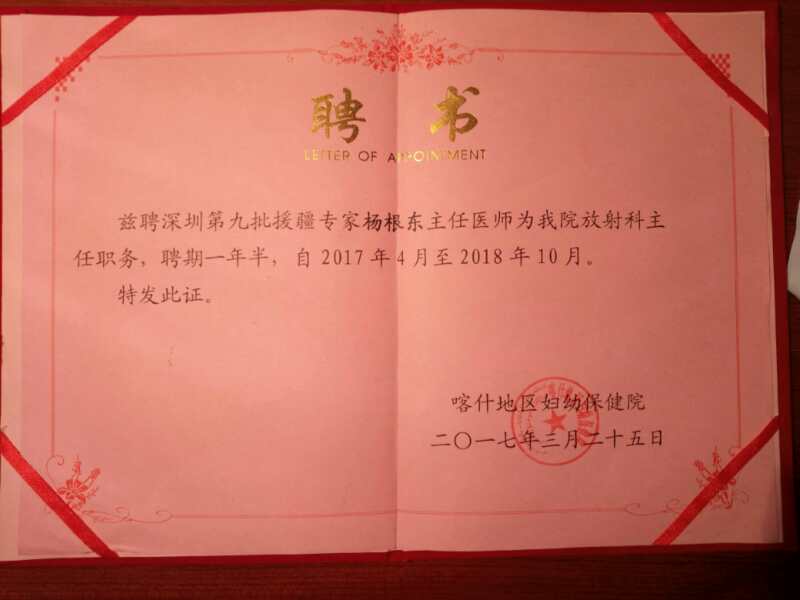 聘书
LETTER OF APPOINTMENT
兹聘深圳第九批援疆专家杨根东主任医师为我院放射科主
任职务，聘期一年半，自2017年4月至2018年10月。
特发此证。
喀什地区妇幼保健院
二〇一七年三月二十五日